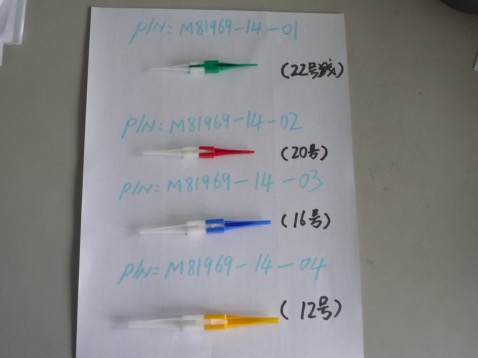 P/N: M81969-14-01
(22号线)
P/N: M81969-14-02
(20号)
P/N: M81969-14-03
(16号)
P/N: M81969-14-04
(12号)